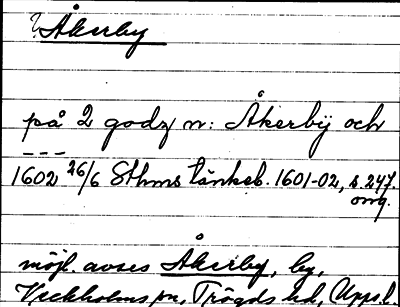 ? Åkerby
på 2 godz n: Åkerbÿ och
---
1602 26/6 Sthms tänkeb. 1601-02, s. 247.
omg.
möjl. avses Åkerby, by,
Veckholms sn, Trögds hd, Uppl.